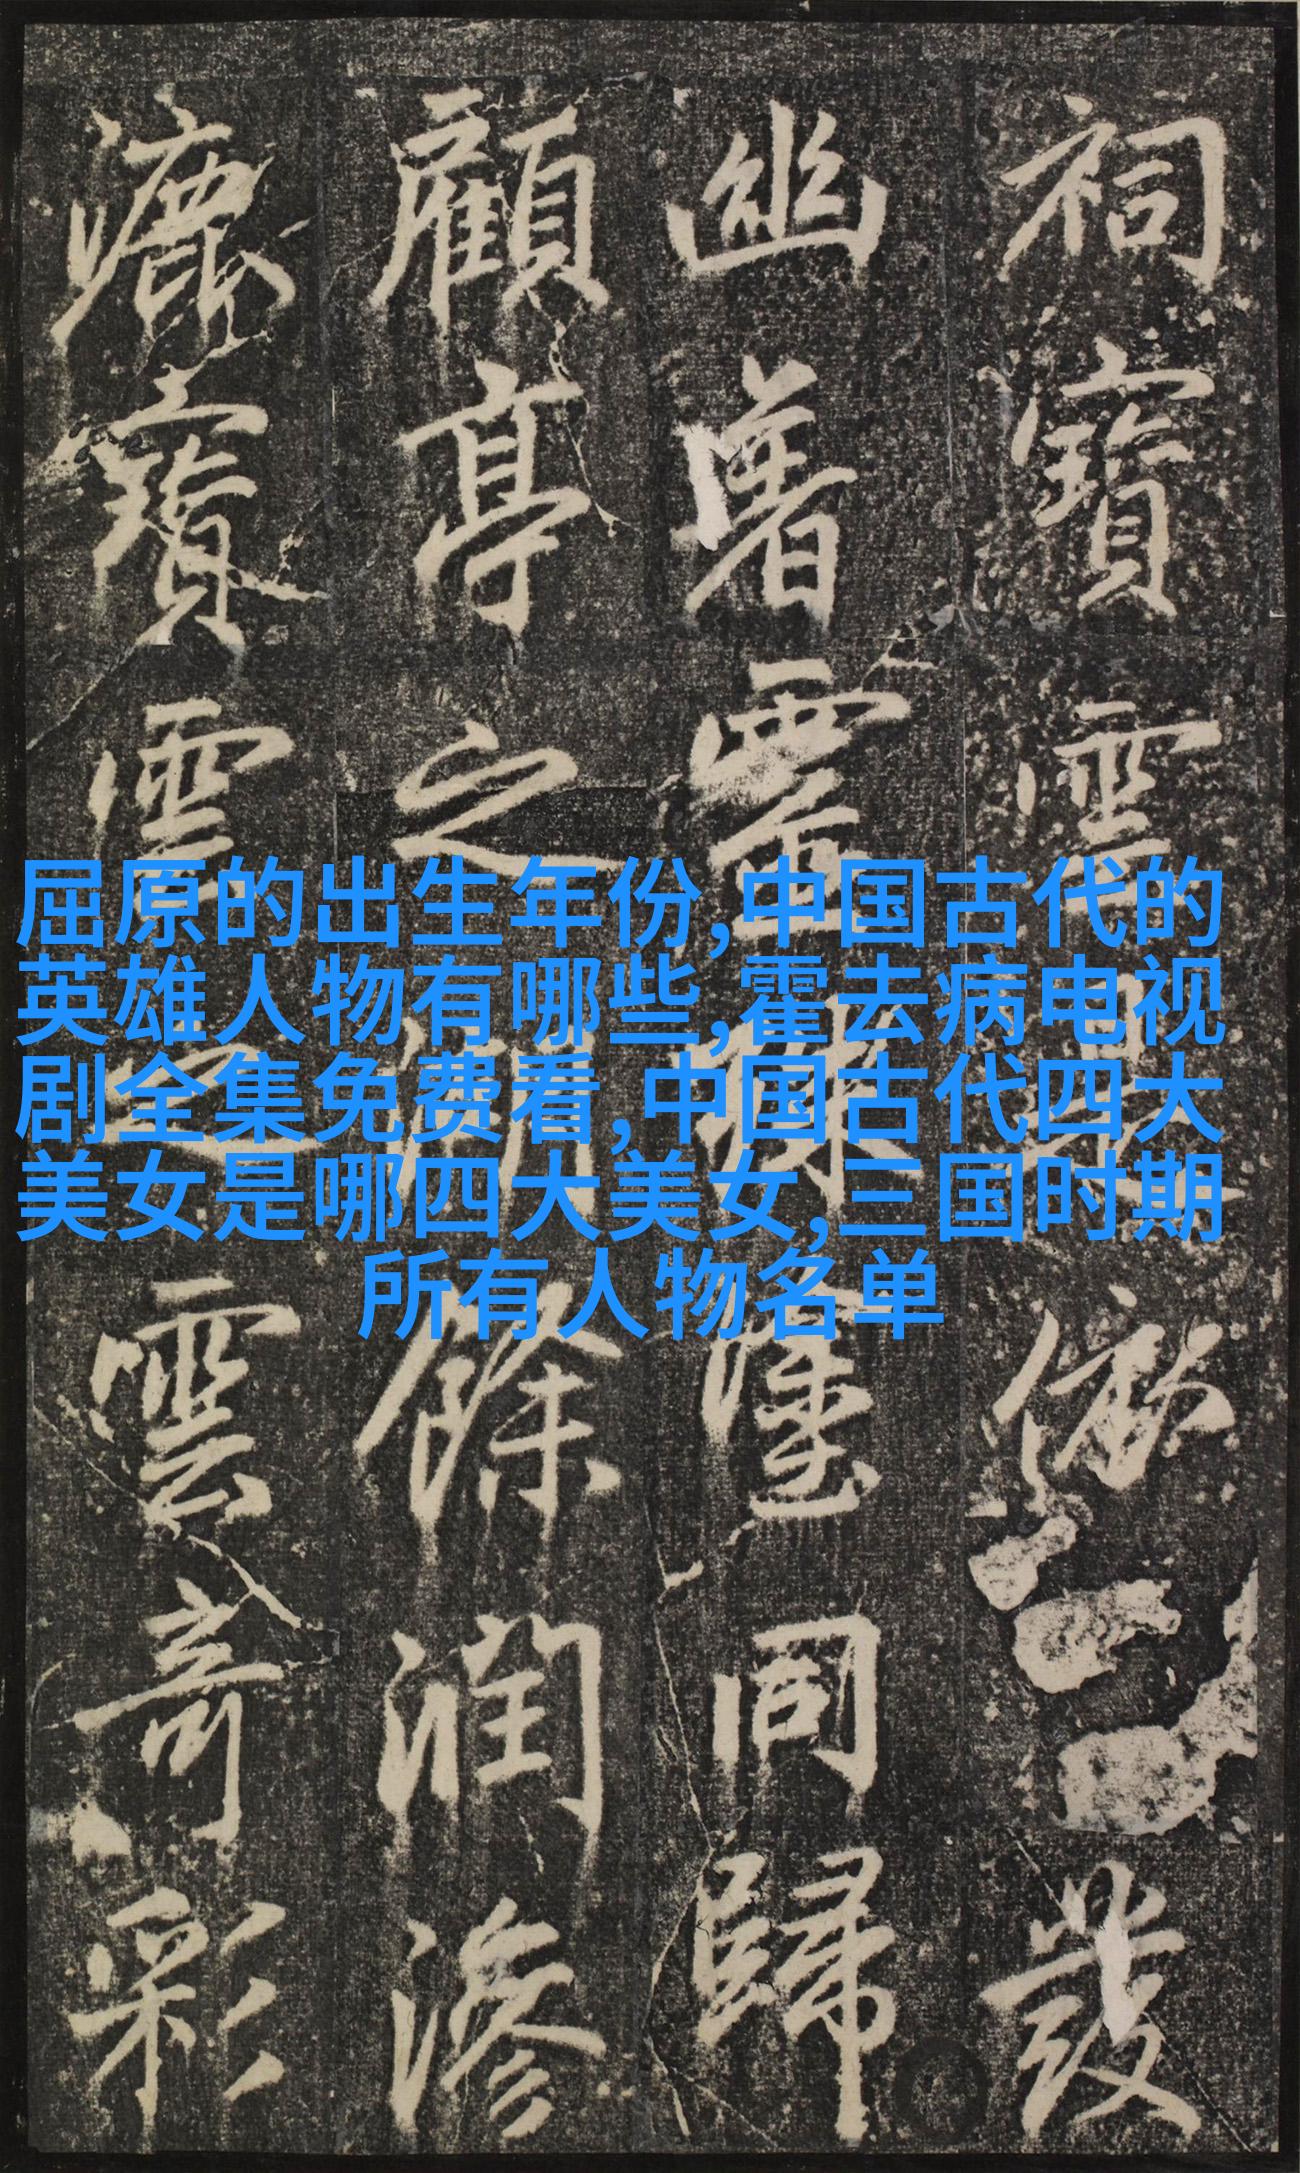 屈原的出生年份,中国古代的
英雄人物有哪些,霍去病电视
剧全集免费看,中国古代四大
美女是哪四大美女,三国时期
所有人物名单
祠寶發
幽著靈同歸
顧亭之餘潤滲
漉寶雲之雲奇彩